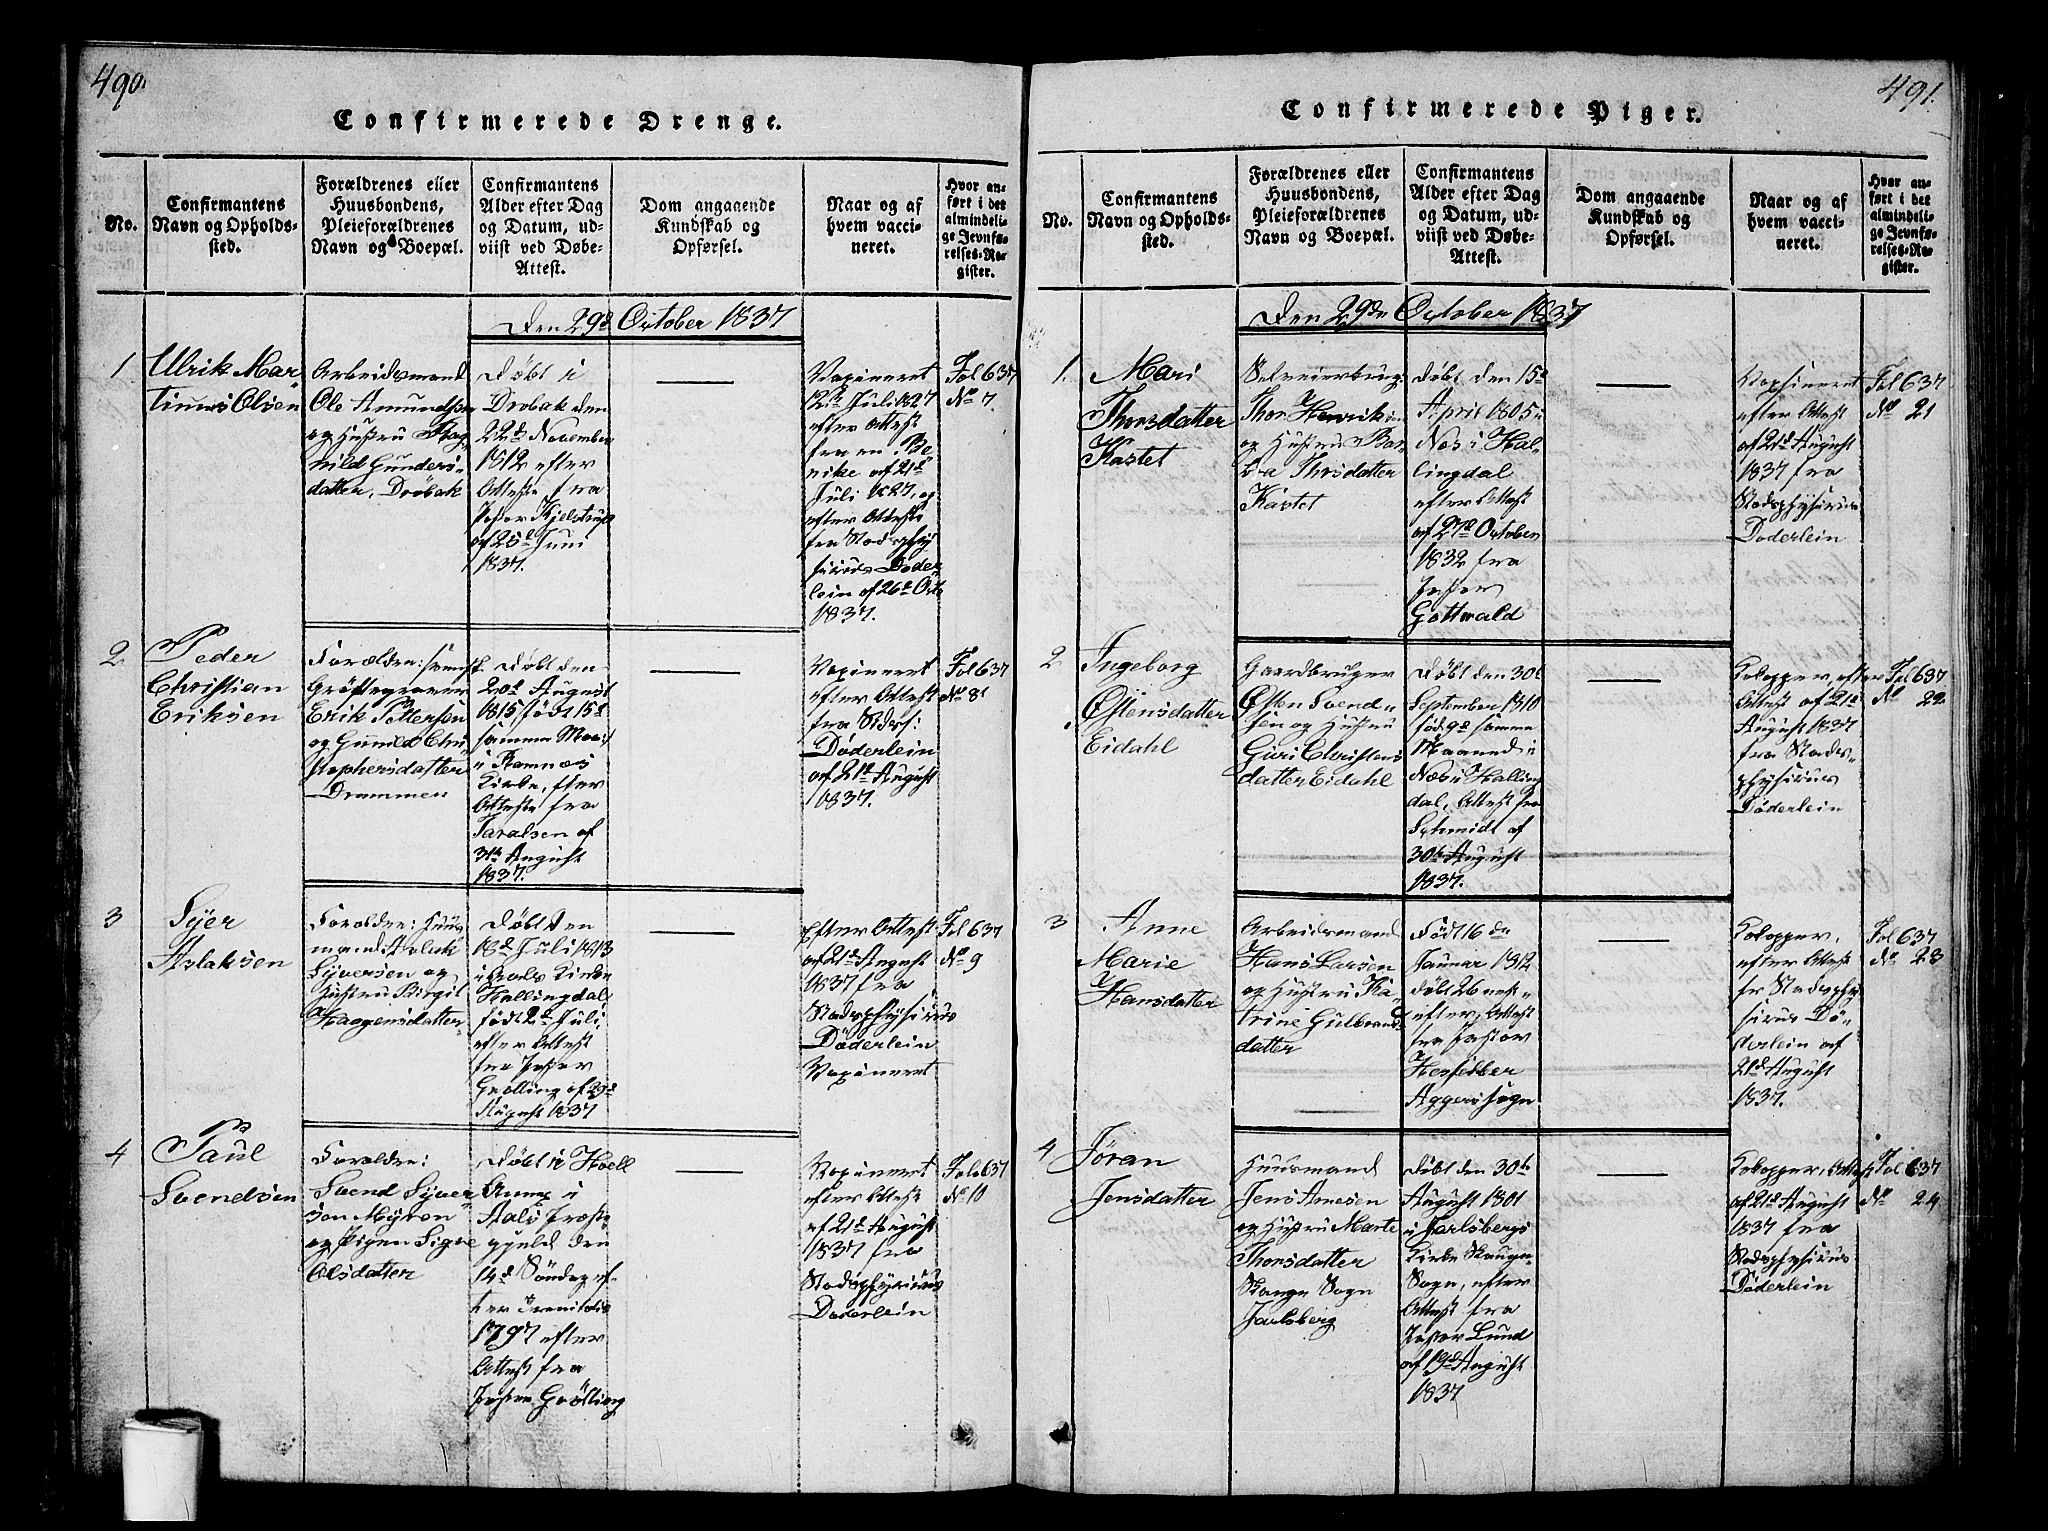 490.
Confirmerede Drenge.
No.
Confirmantens
Navn og Opholds-
sted.
Forældrenes eller
Huusbondens,
Pleieforældrenes
Navn og Boepæl.
Confirmantens
Alder efter Dag
og Datum, ud-
viist ved Døbe-
Attest.
Dom angaaende
Kundskab og
Opførsel.
Naar og af
hvem vacci-
neret.
Hvor an-
ført i det
almindeli-
ge Jevnfø-
relses-Re-
gister.
Den 29d October 1837
1
Ulrik Mar
tinus Olsen
Arbeidsmand
Ole Amundsen
og Hustru Rag
nild Gunders-
datter, Dröbak
Døbt i
Drøbak den
22d November
1812 efter
Attest fra
Pastor Kjelstrup
af 25d Juni
1837.
Vaxineret
12te Juli 1827
efter Attest
fra
af 21d
Juli 1827, og
efter Attest
fra Stadsphy
sicus Døder
lein af 26d Oct
1837.
Fol 637
No 7.
2
Peder
Christian
Eriksen
Forældre: svensk
Grøftegraver
Erik Pettersen
og Gunild Chri
stophersdatter
Drammen
Døbt den
20d August
1815, født 15d
samme Maan
i Ramnæs
Kirke, efter
Attest fra
Taralsen af
31te August
1837.
Vaxineret
efter Attest
fra Stadsf:
Døderlein
af 21d August
1837.
Fol 637
No 8
3
Syer
Aslaksen
Forældre: Huus
mand Aslak
Syversen og
Hustru Birgit
Haagensdatter
Døbt den
18d Juli 1813
i Aals Kirke
Hallingdal,
født 2d Juli,
efter Attest
fra Pastor
Grølling af 29d
August 1837
Efter Attest
af 21d August
1837 fra
Stadsphysicus
Døderlein
Vaxineret
Fol 637
No 9
4
Paul
Svendsen
Forældre:
Svend Syver
sen Myren
og Pigen Signe
Olsdatter
Døbt i Hoell
Annex i
Aals Præste
gjeld den
14d Søndag ef
ter Trinitatis
1797 efter
Attest fra
Pastor Grölling
Vaxineret
efter Attest
af 21d August
1837 fra
Stadsphysicus
Døderlein
Fol 637
No 10
491.
Confirmerede Piger.
No.
Confirmantens
Navn og Opholds-
sted.
Forældrenes eller
Huusbondens,
Pleieforældrenes
Navn og Boepæl.
Confirmantens
Alder efter Dag
og Datum, ud-
viist ved Døbe-
Attest.
Dom angaaende
Kundskab og
Opførsel.
Naar og af
hvem vacci-
neret.
Hvor an-
ført i det
almindeli-
ge Jevnfø-
relses-Re-
gister.
Den 29de October 1837
1.
Mari
Thorsdatter
Kastet
Selveierbrug:
Thor Henriksen
og Hustru Bar
bra Thorsdatter
Kastet
Døbt den 15d
April 1805 i
Næs i Hal-
lingdal
efter Attest
af 27d October
1832 fra
Pastor
Gottwald
Vaxsineret
efter Attest
af 21d August
1837 fra
Stadsphysicus
Døderlein
Fol 637
No 21
2
Ingeborg
Østensdatter
Eidahl
Gaardbruger
Østen Svend-
sen og Hustru
Guri Christens
datter Eidahl
Døbt den 30d
September 1810
fød 9d samme
Maaned i
Næs i Halling
dal, Attest fra
Schmidt af
30te August
1837.
Kokopper, efter
Attest af 21d
August 1837
fra Stads-
physicus
Døderlein
Fol 637
No 22
3
Anne
Marie
Hansdatter
Arbeidsmand
Hans Larsen
og Hustru Ka-
trine Gulbrands
datter
Født 16de
Januar 1812
døbt 26 næst-
efter, Attest
fra Pastor
Hesselber
Aggers sogn
Kokopper,
efter Attest
fr Stadsphy
sicus Dø-
derlein af
21d August
1837.
Fol 637
No 23
4
Jøran
Jensdatter
Huusmand
Jens Arnesen
og Hustru Marte
Thorsdatter
Skauge Sogn
Jarlsberg
Døbt den 30te
August 1801
i Jarlsbergs
Kirke Skauge-
Sogn, efter
Attest fra
Pastor Lund
af 19d August
1837
Kokopper, Attest
af 21d August
1837 fra
Stadsphysicus
Døderlein
Fol 637
No 24